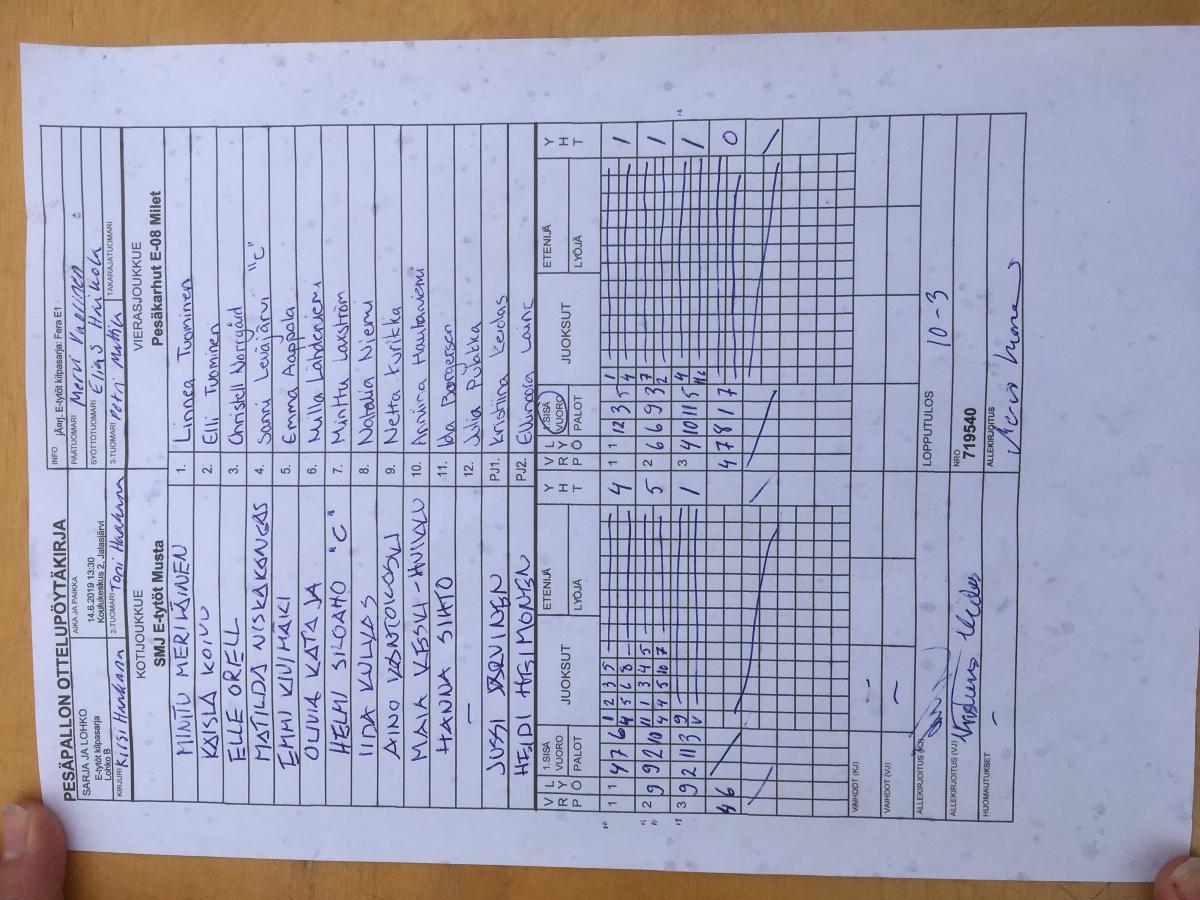 PESÄPALLON OTTELUPÖYTÄKIRJA
SARJA JA LOHKO
E-tytöt kilpasarja
Lohko B
AIKA JA PAIKKA
14.6.2019 13:30
Koulukeskus 2, Jalasjärvi
INFO jÄrj. E-tytöt kilpasarja: Fera E1
PÄÄTUOMARI Mervi
SYÖTTÖTUOMARI Elias
KIRJURI Kirsi Hankana
2-TUOMARI Topi Hankana
3-TUOMARI Petri
TAKARAJATUOMARI
KOTIJOUKKUE VIERASJOUKKUE
SMJ E-tytöt Musta Pesäkarhut E-08 Milet
MINTTU MERIKÄINEN 1. Linnea Tuominen
KAISLA KOIVU 2. Elli Tuominen
ELLE ORELL 3. Christell Norrgård
MATILDA NISKAKANGAS 4. Sanni Leväjärvi "C"
EMMI KIVIMÄKI 5. Emma Aappola
OLIVIA KATAJA 6. Milla Lähdeniemi
HELMI SILOAHO "C" 7. Minttu Laxström
IIDA 8. Natalia Niemi
AINO 9. Netta Kurikka
MAIA 10. Anniina Hautaniemi
HANNA 11. Ida Borgersen
— 12. Julia
JUSSI PJ1. Kristiina Kedas
HEIDI HEIMONEN PJ2. Laine
V R P L Y Ö 1.SISÄ VUORO PALOT JUOKSUT ETENIJÄ LYÖJÄ Y H T V R P L Y Ö 1.SISÄ VUORO PALOT JUOKSUT ETENIJÄ LYÖJÄ Y H T
1 1 4 7 6 1 2 3 5 4 1 1 12 3 5 1 1
4 5 6 8 4
2 9 9 2 10 11 1 3 4 5 5 2 6 6 9 3 7 1
4 4 5 10 7 2
3 9 2 11 3 9 1 3 4 10 11 5 4 1
V
4 6 4 7 8 1 7 0
VAIHDOT (KJ) —
VAIHDOT (VJ) —
ALLEKIRJOITUS (KJ)
LOPPUTULOS 10-3
ALLEKIRJOITUS (VJ)
NRO
719540
HUOMAUTUKSET —
ALLEKIRJOITUS
Mervi